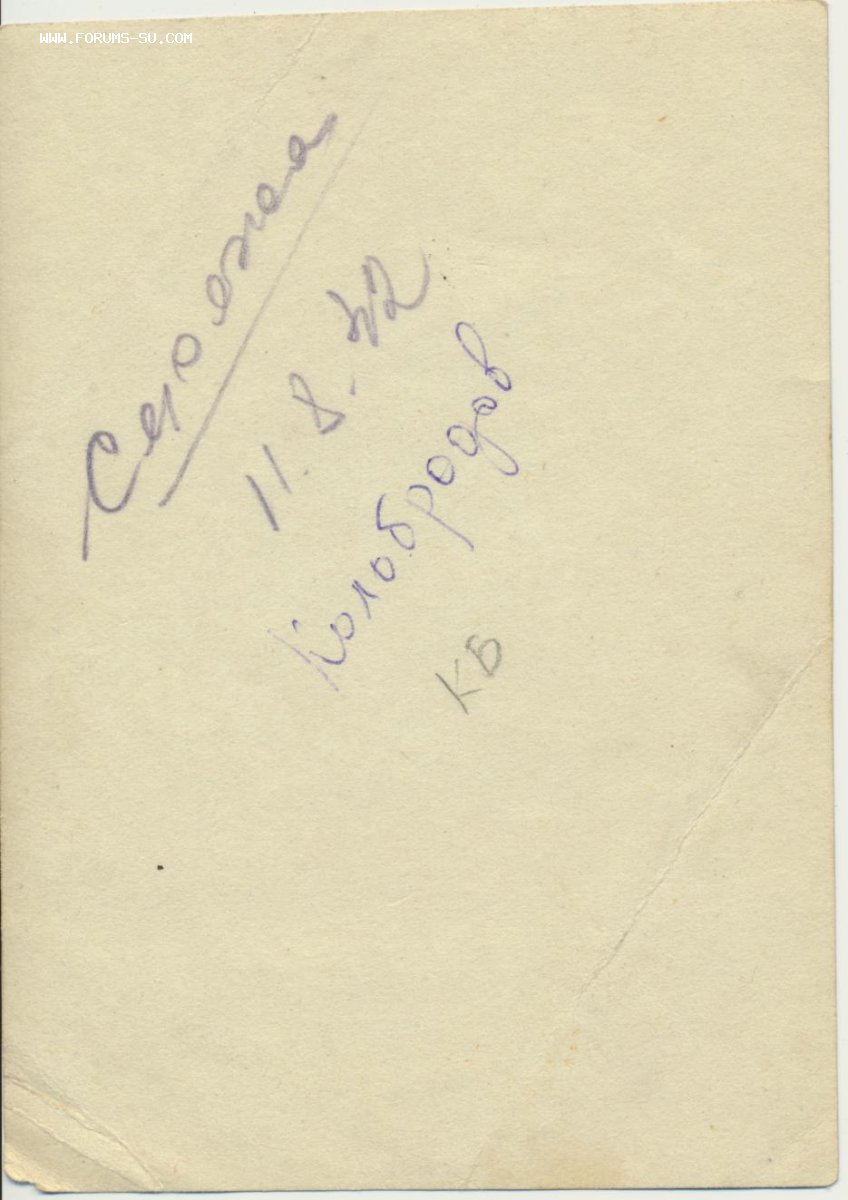 WWW.FORUMS-SU.COM
11.8.42
Колобродов
КБ